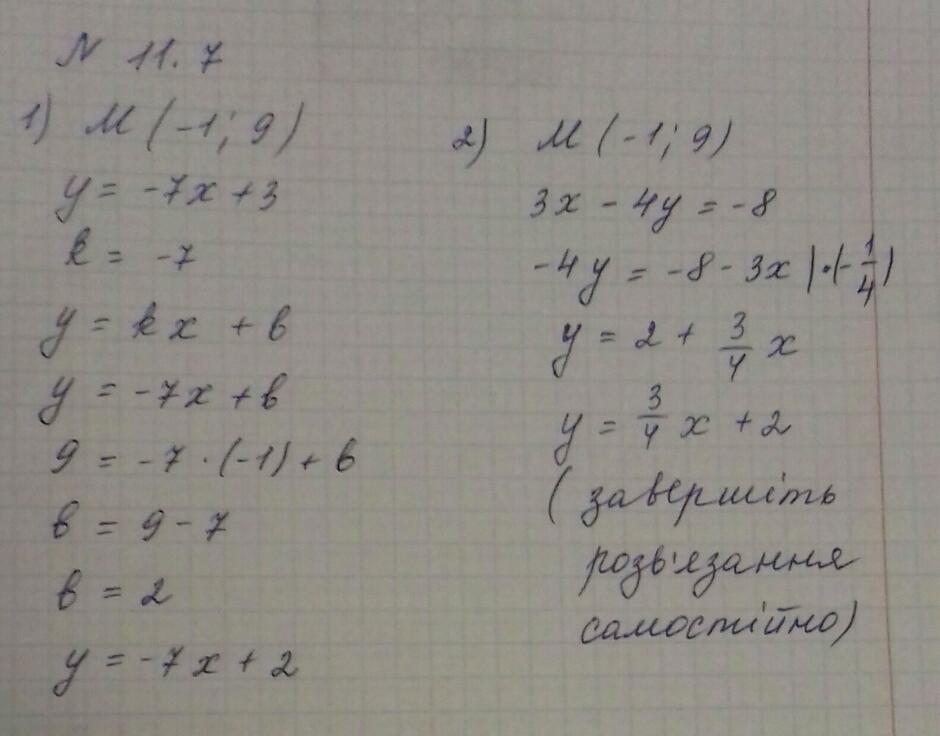 N 11.7
1) M(-1; 9)
y = -7x + 3
k = -7
y = kx + b
y = -7x + b
9 = -7 · (-1) + b
b = 9 - 7
b = 2
y = -7x + 2
2) M(-1; 9)
3x - 4y = -8
-4y = -8 - 3x |·(-1/4)
y = 2 + 3/4 x
y = 3/4 x + 2
(завершіть
розв'язання
самостійно)